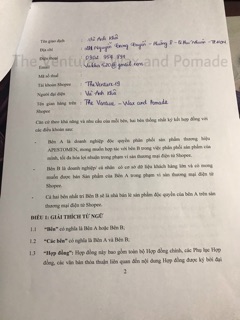 Tên giao dịch : Vũ Anh Khô
Địa chỉ : Nguyễn Trọng Tuyển - Phường 8 - Q. Phú Nhuận - Tp HCM
Điện thoại :
Email : @gmail.com
Mã số thuế :
Tài khoản Shopee : TheVenture.13
Người đại diện : Vũ Anh Khô
Tên gian hàng trên : The Venture - Wax and Pomade
Shopee
The Venture - Wax and Pomade
Căn cứ theo khả năng và nhu cầu của mỗi bên, hai bên thống nhất ký kết hợp đồng với
các điều khoản sau:
- Bên A là doanh nghiệp độc quyền phân phối sản phẩm thương hiệu
APESTOMEN, trong muốn hợp tác với bên B trong việc phân phối sản phẩm của
mình, tối đa hóa lợi nhuận trong phạm vi sàn thương mại điện tử Shopee.
- Bên B là doanh nghiệp/ cá nhân có cơ sở dữ liệu khách hàng lớn và có mong
muốn được bán Sản phẩm của Bên A trong phạm vi sàn thương mại điện tử
Shopee.
- Cả hai bên nhất trí Bên B sẽ là nhà bán lẻ sản phẩm độc quyền của bên A trên sàn
thương mại điện tử Shopee.
ĐIỀU 1: GIẢI THÍCH TỪ NGỮ
1.1 "Bên" có nghĩa là Bên A hoặc Bên B.
1.2 "Các bên" có nghĩa là Bên A và Bên B.
1.3 "Hợp đồng": Hợp đồng này bao gồm toàn bộ Hợp đồng chính, các Phụ lục Hợp
đồng, các văn bản thỏa thuận liên quan đến nội dung Hợp đồng được ký bởi đại
2